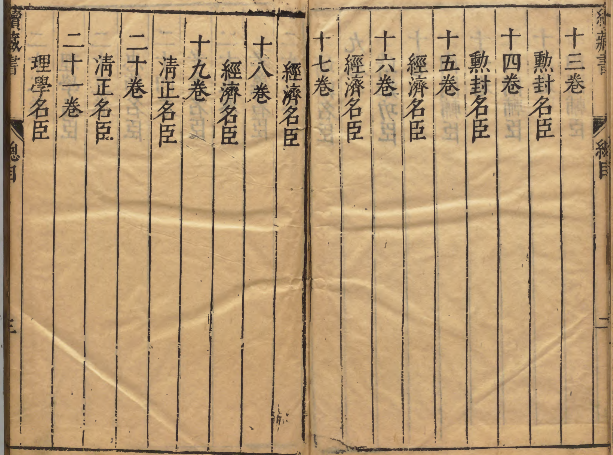 續藏書
總目
二
十三卷
勲封名臣
十四卷
勲封名臣
十五卷
經濟名臣
十六卷
經濟名臣
十七卷
經濟名臣
十八卷
經濟名臣
十九卷
清正名臣
二十卷
清正名臣
二十一卷
理學名臣
續藏書
總目
三